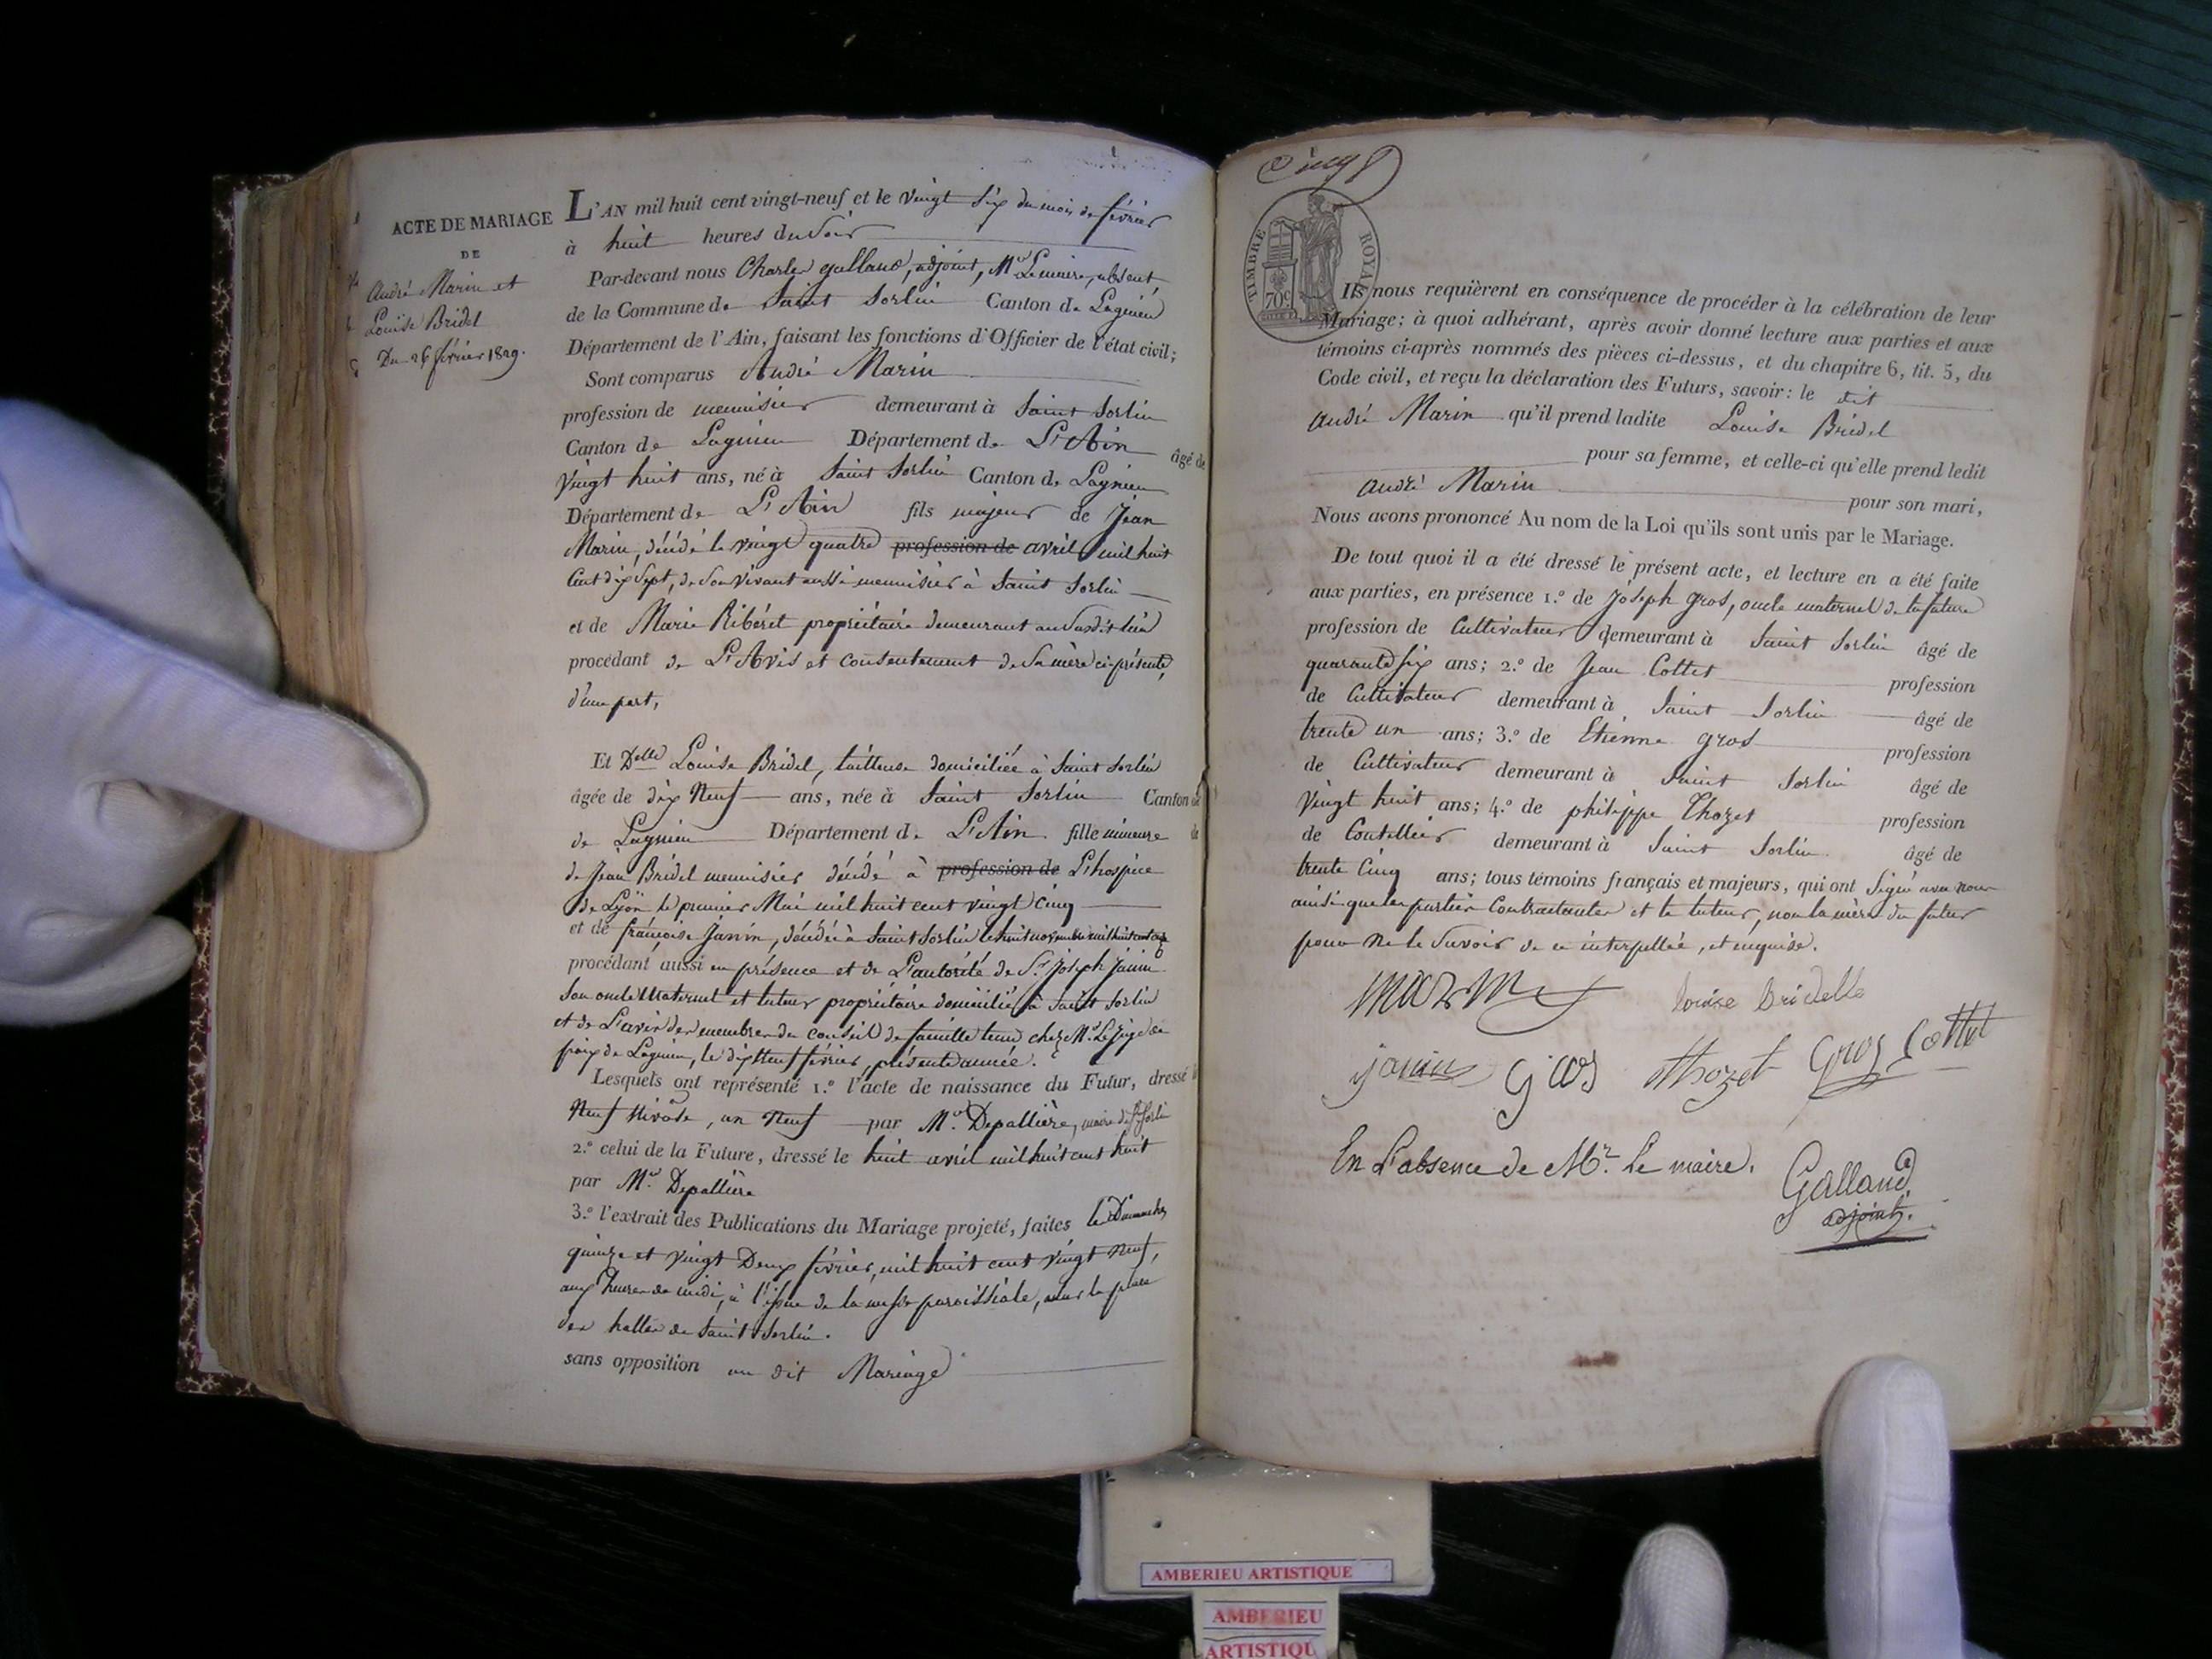 ACTE DE MARIAGE
DE
André Marin et
Louise Bridel
Du 26 février 1829.
L'AN mil huit cent vingt-neuf et le vingt six du mois de février
à huit heures du soir
Par-devant nous Charles galland, adjoint, Mr Le maire, absent,
de la Commune de Saint Sorlin Canton de Lagnieu
Département de l'Ain, faisant les fonctions d'Officier de l'état civil;
Sont comparus André Marin
profession de menuisier demeurant à Saint Sorlin
Canton de Lagnieu Département de L'Ain âgé de
vingt huit ans, né à Saint Sorlin Canton de Lagnieu
Département de L'Ain fils majeur de Jean
Marin, décédé le vingt quatre profession de avril mil huit
Cent dix Sept, de Son vivant aussi menuisier à Saint Sorlin
et de Marie Ribéret propriétaire demeurant au Susdit lieu
procédant de L'Avis et consentement de Sa mère ci-présente,
d'une part,
Et Delle Louise Bridel, tailleuse domiciliée à Saint Sorlin
âgée de dix Neuf ans, née à Saint Sorlin Canton
de Lagnieu Département de L'Ain fille mineure
de Jean Bridel menuisier décédé à profession de L'hospice
de Lyon, le premier Mai mil huit cent vingt Cinq
et de françoise Janin, décédée à Saint Sorlin le huit novembre mil huit cent
procédant aussi en présence et de L'autorité de Sr Joseph Janin
Son oncle Maternel et tuteur propriétaire domicilié à Saint Sorlin
et de L'avis des membres du conseil de famille tenu chez Mr. Le Juge de
paix de Lagnieu, le dix Neuf février, présente année.
Lesquels ont représenté 1.º l'acte de naissance du Futur, dressé
Neuf Nivôse, an Neuf par Mr. Depallière, maire de St Sorlin
2.º celui de la Future, dressé le huit avril mil huit cent huit
par Mr. Depallière
3.º l'extrait des Publications du Mariage projeté, faites les Dimanches
quinze et vingt Deux février, mil huit cent vingt Neuf,
aux heures de midi, à l'issue de la messe paroissiale, sur la place
des halles de Saint Sorlin.
sans opposition au dit Mariage
Cinq
TIMBRE ROYAL
70c
Ils nous requièrent en conséquence de procéder à la célébration de leur
Mariage; à quoi adhérant, après avoir donné lecture aux parties et aux
témoins ci-après nommés des pièces ci-dessus, et du chapitre 6, tit. 5, du
Code civil, et reçu la déclaration des Futurs, savoir: le dit
André Marin qu'il prend ladite Louise Bridel
pour sa femme, et celle-ci qu'elle prend ledit
André Marin pour son mari,
Nous avons prononcé Au nom de la Loi qu'ils sont unis par le Mariage.
De tout quoi il a été dressé le présent acte, et lecture en a été faite
aux parties, en présence 1.º de Joseph Gros, oncle maternel de la future
profession de Cultivateur demeurant à Saint Sorlin âgé de
quarante six ans; 2.º de Jean Cottet profession
de Cultivateur demeurant à Saint Sorlin âgé de
trente un ans; 3.º de Etienne gros profession
de Cultivateur demeurant à Saint Sorlin âgé de
vingt huit ans; 4.º de philippe Thozet profession
de Coutellier demeurant à Saint Sorlin âgé de
trente Cinq ans; tous témoins français et majeurs, qui ont Signé avec nous
ainsi que les parties Contractantes et le tuteur, non la mère du futur
pour ne le Savoir de ce interpellée, et enquise.
Marin louise Bridelle
janin Gros thozet Gros Cottet
En L'absence de Mr. Le maire.
Galland
adjoint.
AMBERIEU ARTISTIQUE
AMBERIEU
ARTISTIQU